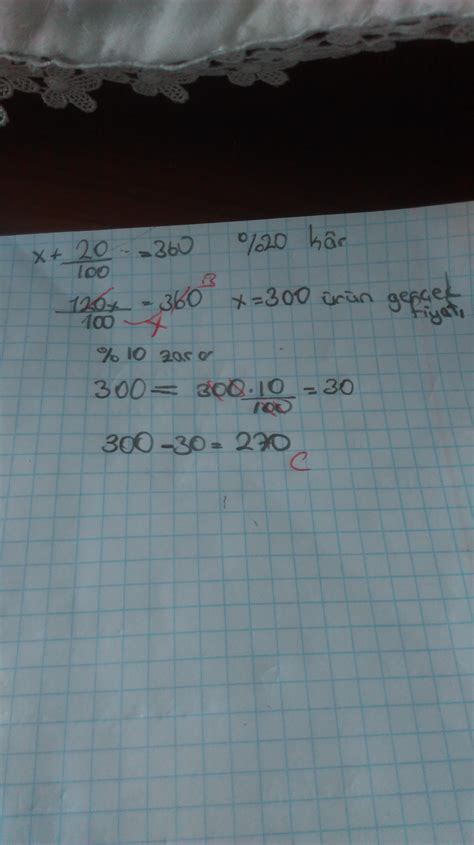 x + 20/100 = 360 %20 kâr
120x/100 = 360 3 x = 300 ürün gerçek fiyatı
%10 zarar
300 = 300.10/100 = 30
300 - 30 = 270
C